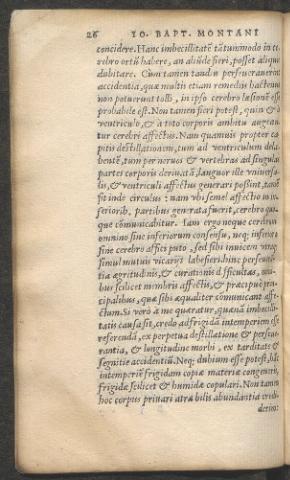 26 IO. BAPT. MONTANI
concidere. Hanc imbecillitatē tātummodo in ce
rebro ortū habere, an aliūde fieri, posset aliquis
dubitare. Cùm tamen tandiu perseuerauerint
accidentia, quæ multis etiam remedijs hactenus
non potuerunt tolli, in ipso cerebro læsionē esse
probabile est. Non tamen fieri potest, quin & à
ventriculo, & à toto corporis ambitu augean
tur cerebri affectus. Nam quamuis propter ca
pitis destillationem, tum ad ventriculum dela
bentē, tum per neruos & vertebras ad singulas
partes corporis deriuatā, languor ille vniuersa
lis, & ventriculi affectus generari possint, tamē
fit inde circulus: nam vbi semel affectio in in
ferioribus partibus generata fuerit, cerebro quo
que cōmunicabitur. Iam ergo neque cerebrum
omnino sine inferiorum consensu, neq; inferiora
sine cerebro affici puto, sed sibi inuicem vitiosi
simul mutuis vicarijs labefieri: hinc persesuen
tia ægritudinis, & curationis difficultas, om̄i
bus scilicet membris affectis, & præcipuè prin
cipalibus, quæ sibi æqualiter cōmunicant affe
ctum. Si verò à me quæratur, quænā imbecilli
tatis causa sit, credo ad frigidā intemperiem esse
referendā, ex perpetua destillatione & perseue
rantia, & longitudine morbi, ex tarditate &
segnitie accidentiū. Neq; dubium esse potest, huic
intemperiei frigidam copiā materiæ congenitā,
frigidæ scilicet & humidæ copulari. Non tamen
hoc corpus priuari atræ bilis abundantia credi-
derim: